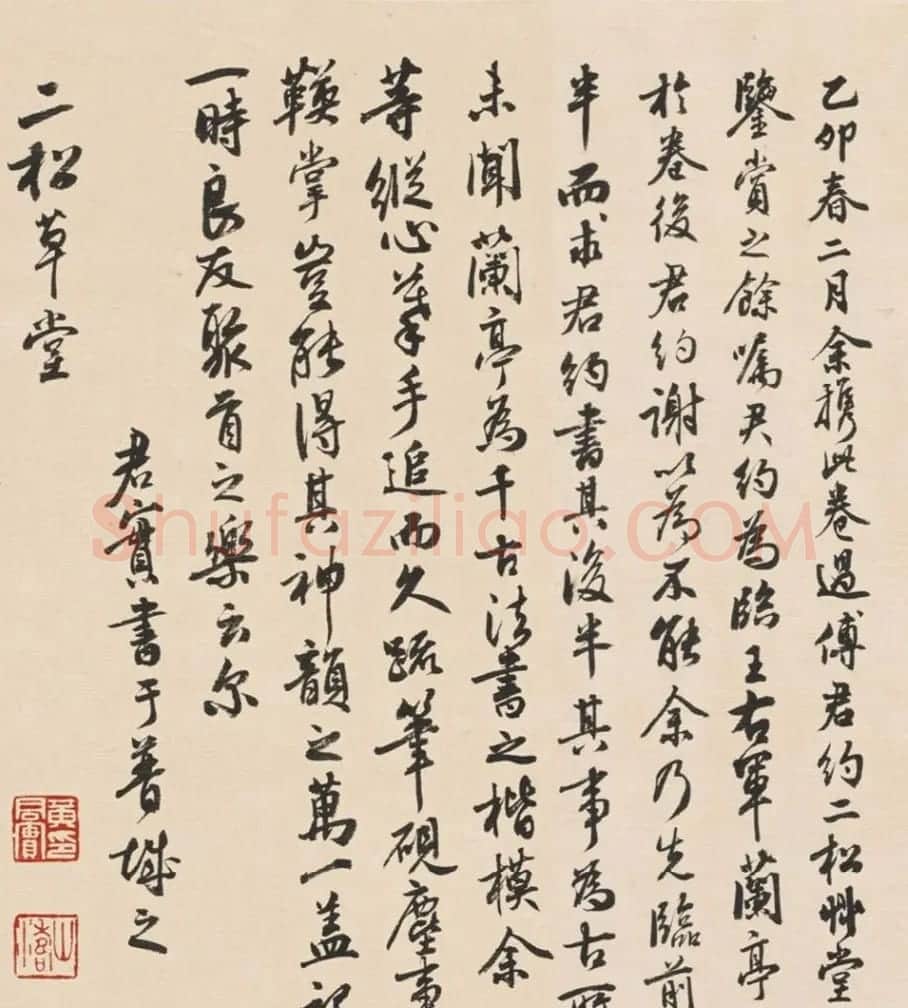 乙卯春二月余攜此卷過傅君約二松艸堂
鑒賞之餘囑君約為臨王右軍蘭亭
於卷後君約謝以為不能余乃先臨前
半而求君約書其後半其事為古所
未聞蘭亭為千古法書之楷模余
等縱心摹手追而久疏筆硯塵事
鞅掌豈能得其神韻之萬一蓋記
一時良友聚首之樂云尔
君實書于普城之
二松草堂
黃君實印
Shufaziliao.COM